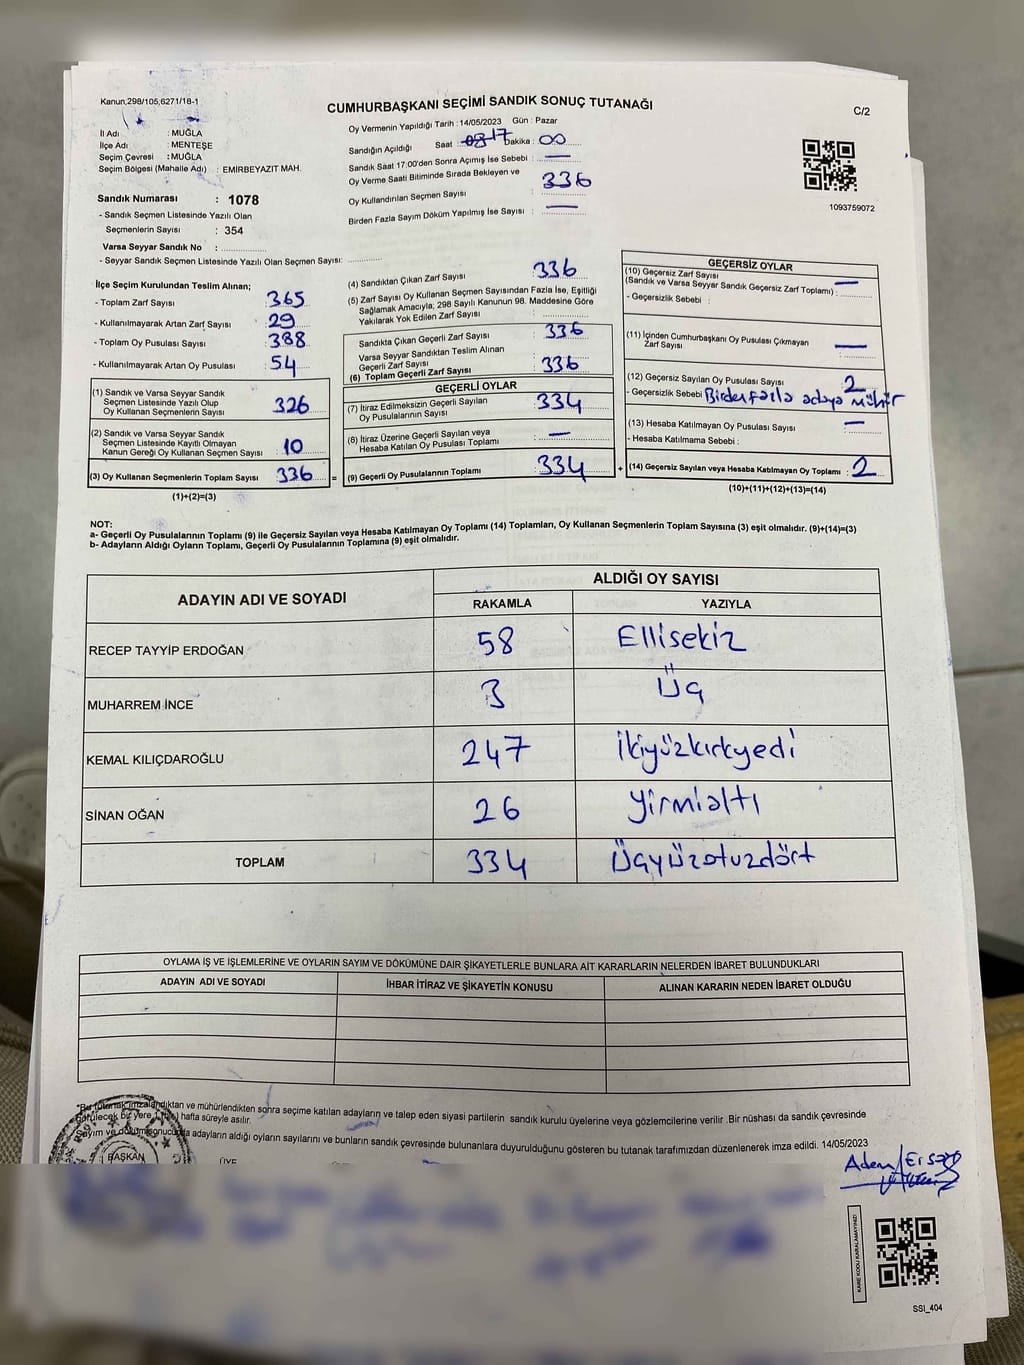 Kanun;298/105,6271/18-1
CUMHURBAŞKANI SEÇİMİ SANDIK SONUÇ TUTANAĞI
C/2
İl Adı : MUĞLA
İlçe Adı : MENTEŞE
Seçim Çevresi : MUĞLA
Seçim Bölgesi (Mahalle Adı) : EMİRBEYAZIT MAH.
Sandık Numarası : 1078
- Sandık Seçmen Listesinde Yazılı Olan
Seçmenlerin Sayısı : 354
Varsa Seyyar Sandık No :
- Seyyar Sandık Seçmen Listesinde Yazılı Olan Seçmen Sayısı:
Oy Vermenin Yapıldığı Tarih : 14/05/2023 Gün : Pazar
Sandığın Açıldığı Saat : 17 Dakika : 00
Sandık Saat 17:00'den Sonra Açımış İse Sebebi : —
Oy Verme Saati Bitiminde Sırada Bekleyen ve
Oy Kullandırılan Seçmen Sayısı : 336
Birden Fazla Sayım Döküm Yapılmış İse Sayısı : —
1093759072
İlçe Seçim Kurulundan Teslim Alınan;
- Toplam Zarf Sayısı : 365
- Kullanılmayarak Artan Zarf Sayısı : 29
- Toplam Oy Pusulası Sayısı : 388
- Kullanılmayarak Artan Oy Pusulası : 54
(1) Sandık ve Varsa Seyyar Sandık
Seçmen Listesinde Yazılı Olup
Oy Kullanan Seçmenlerin Sayısı : 326
(2) Sandık ve Varsa Seyyar Sandık
Seçmen Listesinde Kayıtlı Olmayan
Kanun Gereği Oy Kullanan Seçmen Sayısı : 10
(3) Oy Kullanan Seçmenlerin Toplam Sayısı : 336 =
(1)+(2)=(3)
(4) Sandıktan Çıkan Zarf Sayısı : 336
(5) Zarf Sayısı Oy Kullanan Seçmen Sayısından Fazla İse, Eşitliği
Sağlamak Amacıyla; 298 Sayılı Kanunun 98. Maddesine Göre
Yakılarak Yok Edilen Zarf Sayısı :
Sandıkta Çıkan Geçerli Zarf Sayısı : 336
Varsa Seyyar Sandıktan Teslim Alınan
Geçerli Zarf Sayısı :
(6) Toplam Geçerli Zarf Sayısı : 336
GEÇERLİ OYLAR
(7) İtiraz Edilmeksizin Geçerli Sayılan
Oy Pusulalarının Sayısı : 334
(8) İtiraz Üzerine Geçerli Sayılan veya
Hesaba Katılan Oy Pusulası Toplamı : —
(9) Geçerli Oy Pusulalarının Toplamı : 334 +
GEÇERSİZ OYLAR
(10) Geçersiz Zarf Sayısı
(Sandık ve Varsa Seyyar Sandık Geçersiz Zarf Toplamı) : —
- Geçersizlik Sebebi :
(11) İçinden Cumhurbaşkanı Oy Pusulası Çıkmayan
Zarf Sayısı : —
(12) Geçersiz Sayılan Oy Pusulası Sayısı : 2
- Geçersizlik Sebebi : Birden fazla adaya mühür
(13) Hesaba Katılmayan Oy Pusulası Sayısı : —
- Hesaba Katılmama Sebebi :
(14) Geçersiz Sayılan veya Hesaba Katılmayan Oy Toplamı : 2
(10)+(11)+(12)+(13)=(14)
NOT:
a- Geçerli Oy Pusulalarının Toplamı (9) ile Geçersiz Sayılan veya Hesaba Katılmayan Oy Toplamı (14) Toplamları, Oy Kullanan Seçmenlerin Toplam Sayısına (3) eşit olmalıdır. (9)+(14)=(3)
b- Adayların Aldığı Oyların Toplamı, Geçerli Oy Pusulalarının Toplamına (9) eşit olmalıdır.
ADAYIN ADI VE SOYADI
ALDIĞI OY SAYISI
RAKAMLA YAZIYLA
RECEP TAYYİP ERDOĞAN 58 Ellisekiz
MUHARREM İNCE 3 Üç
KEMAL KILIÇDAROĞLU 247 ikiyüzkırkyedi
SİNAN OĞAN 26 yirmialtı
TOPLAM 334 Üçyüzotuzdört
OYLAMA İŞ VE İŞLEMLERİNE VE OYLARIN SAYIM VE DÖKÜMÜNE DAİR ŞİKAYETLERLE BUNLARA AİT KARARLARIN NELERDEN İBARET BULUNDUKLARI
ADAYIN ADI VE SOYADI İHBAR İTİRAZ VE ŞİKAYETİN KONUSU ALINAN KARARIN NEDEN İBARET OLDUĞU
*Bu tutanak imzalandıktan ve mühürlendikten sonra seçime katılan adayların ve talep eden siyasi partilerin sandık kurulu üyelerine veya gözlemcilerine verilir. Bir nüshası da sandık çevresinde
görülecek bir yere hafta süreyle asılır.
Sayım ve dökümü sonucunda adayların aldığı oyların sayılarını ve bunların sandık çevresinde bulunanlara duyurulduğunu gösteren bu tutanak tarafımızdan düzenlenerek imza edildi. 14/05/2023
BAŞKAN ÜYE
Adem
KARE KODU KARALAMAYINIZ!
SSI_404